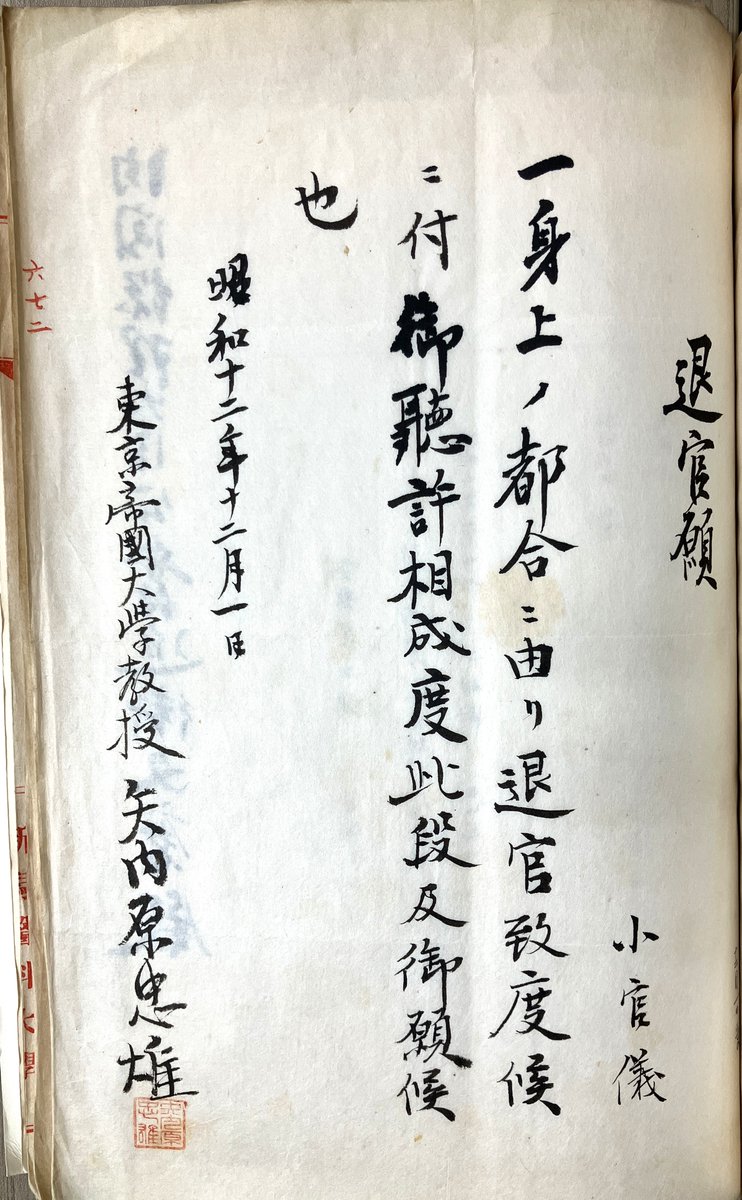 退官願
小官儀
一身上ノ都合ニ由リ退官致度候
ニ付御聽許相成度此段及御願候
也
昭和十二年十二月一日
東京帝國大學教授 矢内原忠雄
六七二